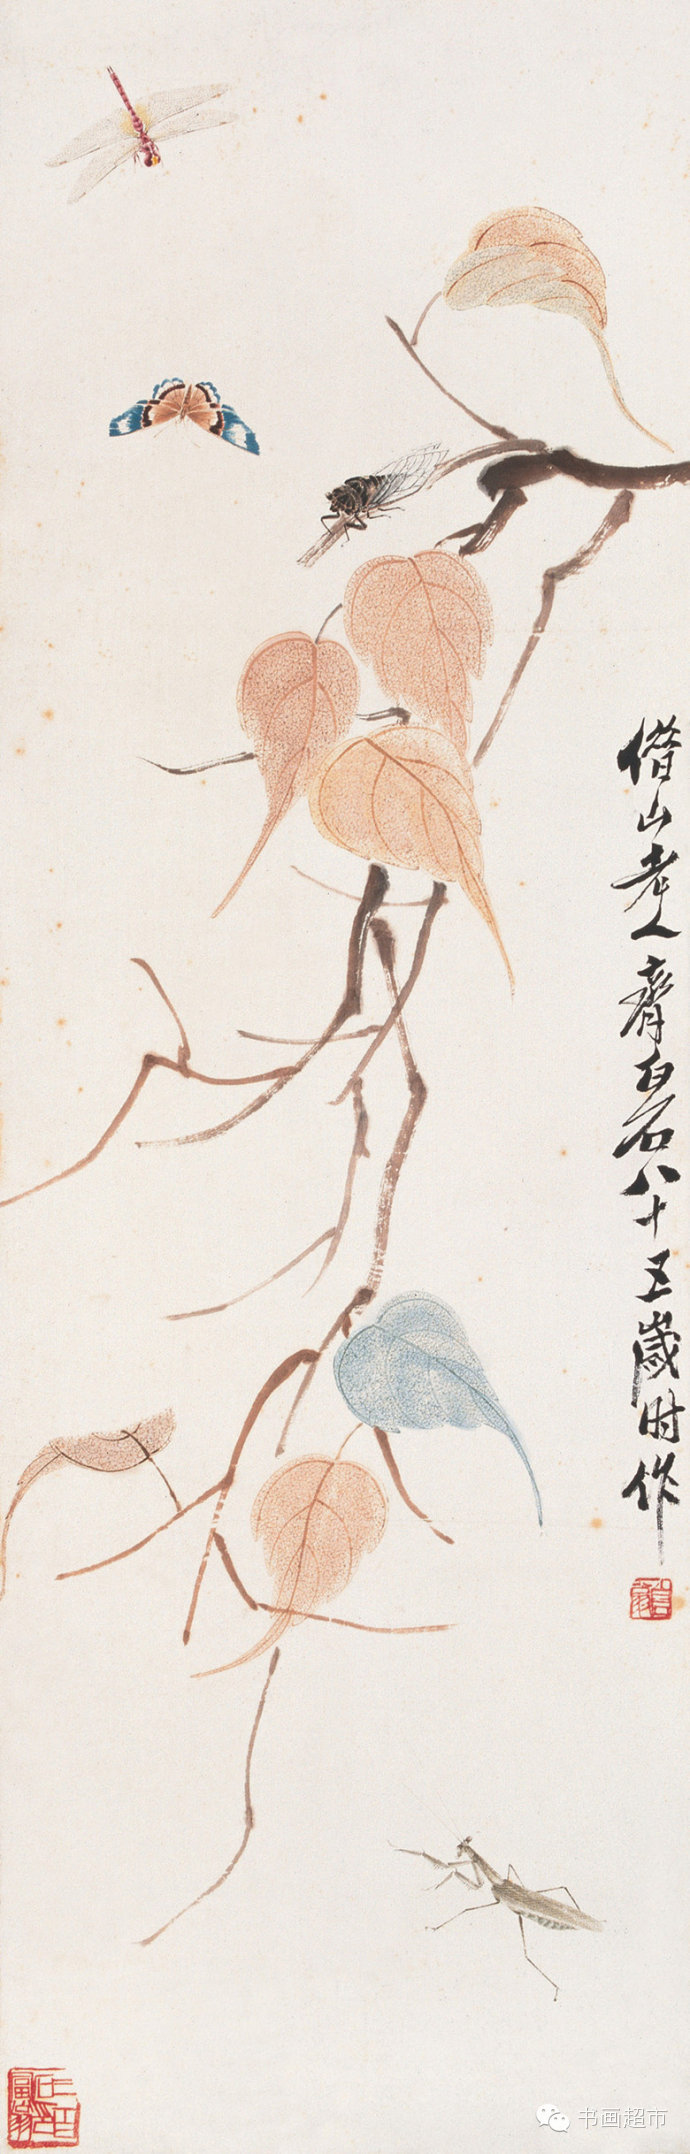 借山老人齊白石八十五歲时作
书画超市